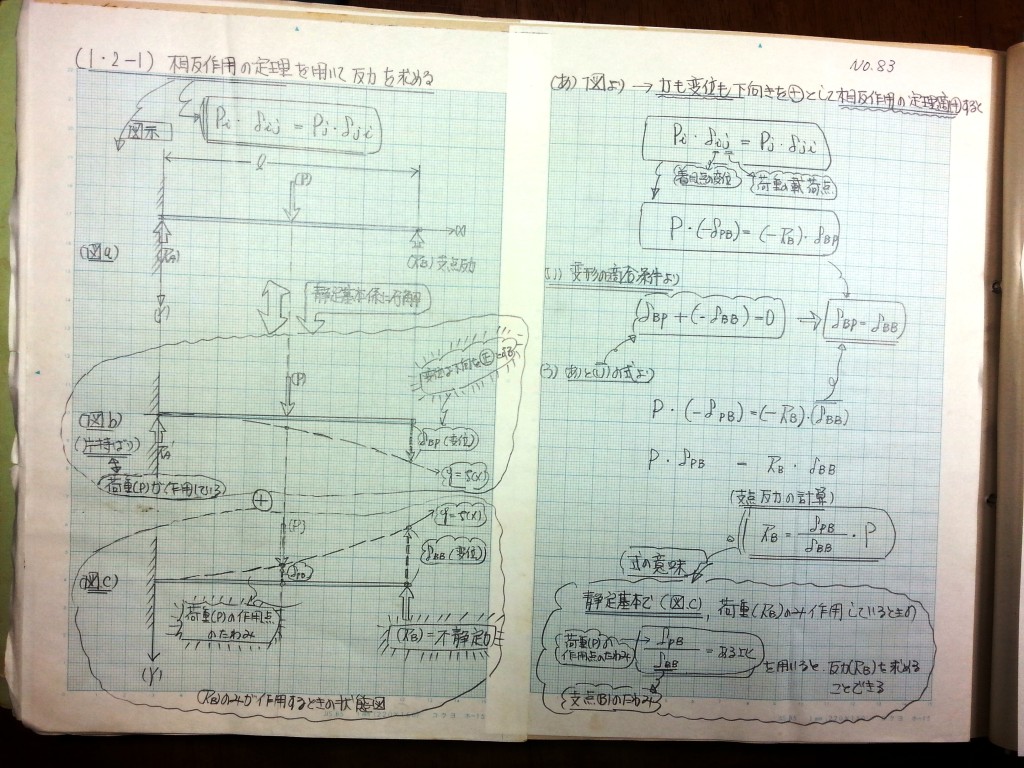 (1・2-1) 相反作用の定理を用いて反力を求める
図示
Pi・δij = Pj・δji
ℓ
(P)
(RA)
x
(RB) 支点反力
(図a)
(y)
静定基本係に分解
(P)
変位は下向を正とする
(図b)
(片持ばり)
RA
δBP(変位)
y=f(x)
荷重(P)が作用している
+
(P)
y=f(x)
δBB(変位)
δPB
(図c)
荷重(P)の作用点
のたわみ
(RB)=不静定力
(y)
(RB)のみが作用するときの状態図
NO.83
(あ) 図より → 力も変位も下向きを+として相反作用の定理適用すると
Pi・δij = Pj・δji
着目点の変位
荷重の載荷点
P・(-δPB) = (-RB)・δBP
(い) 変形の適合条件より
δBP+(-δBB)=0 → δBP=δBB
(う) (あ)と(い)の式より
P・(-δPB)=(-RB)・(δBB)
P・δPB = RB・δBB
(支点反力の計算)
RB = δPB/δBB・P
式の意味
静定基本で(図.c), 荷重(RB)のみ作用しているときの
荷重(P)の
作用点のたわみ
δPB/δBB = ある比
を用いると、反力(RB)を求める
ことできる
支点(B)のたわみ